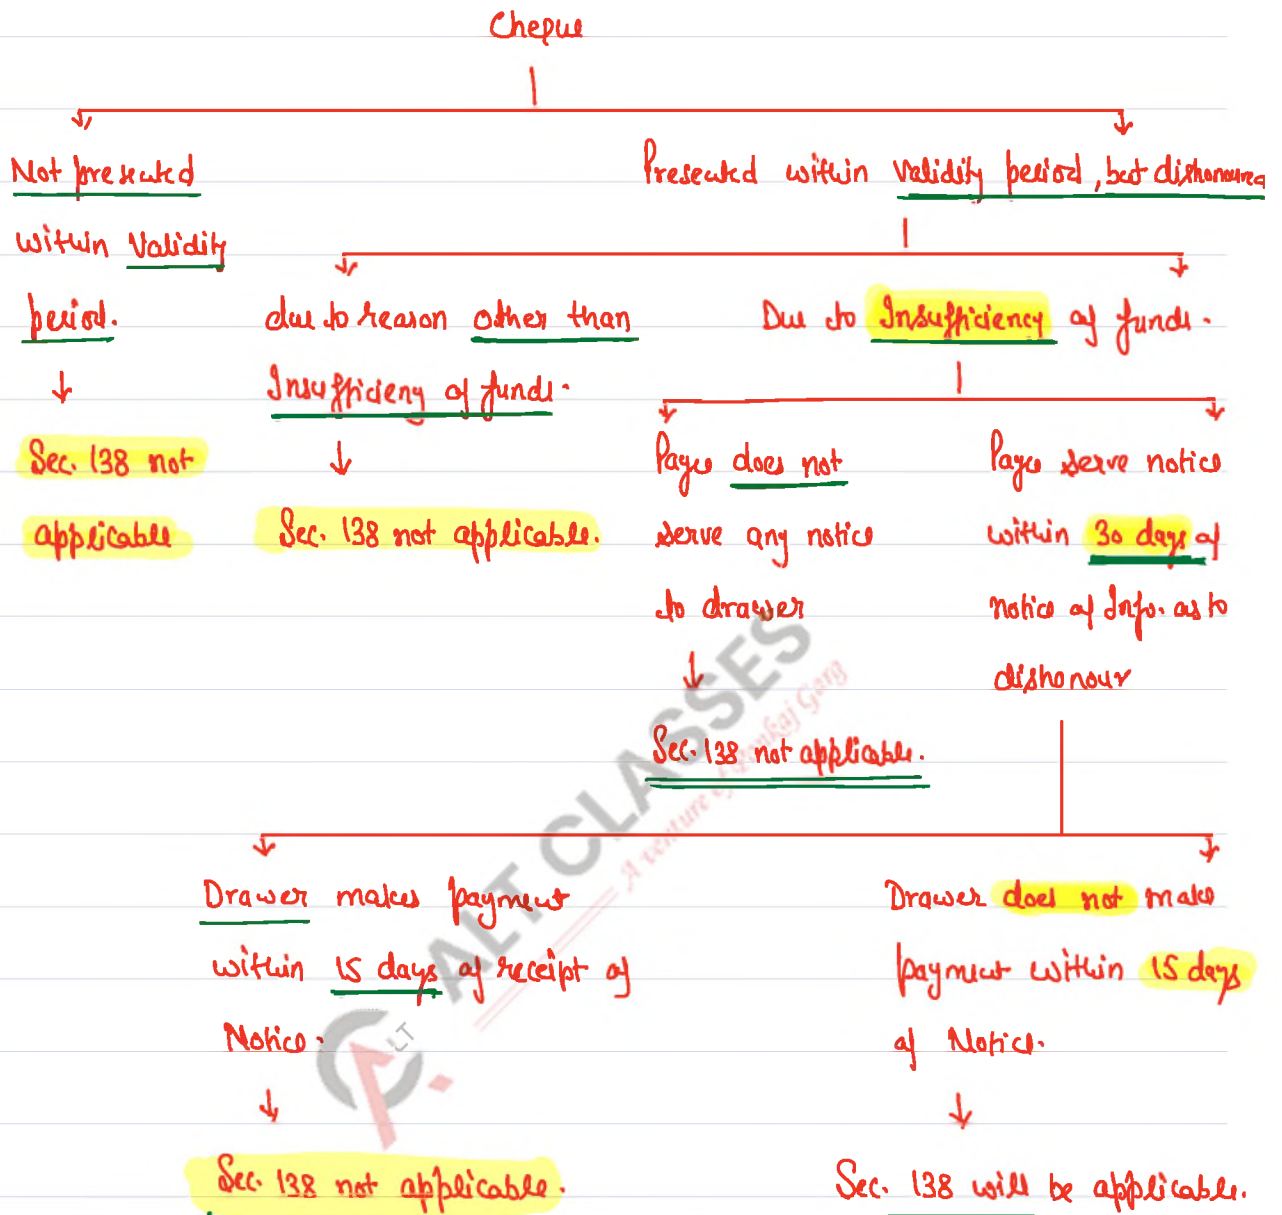 Cheque
Not presented
within Validity
period.
↓
Sec. 138 not
applicable
Presented within Validity period, but dishonoured
due to reason other than
Insufficieny of funds.
↓
Sec. 138 not applicable.
Due to Insufficiency of funds.
Payee does not
serve any notice
to drawer
↓
Sec. 138 not applicable.
Payee serve notice
within 30 days of
notice of Info. as to
dishonour
Drawer makes payment
within 15 days of receipt of
Notice.
↓
Sec. 138 not applicable.
Drawer does not make
payment within 15 days
of Notice.
↓
Sec. 138 will be applicable.
ALT CLASSES
A venture of Pankaj Garg
LT